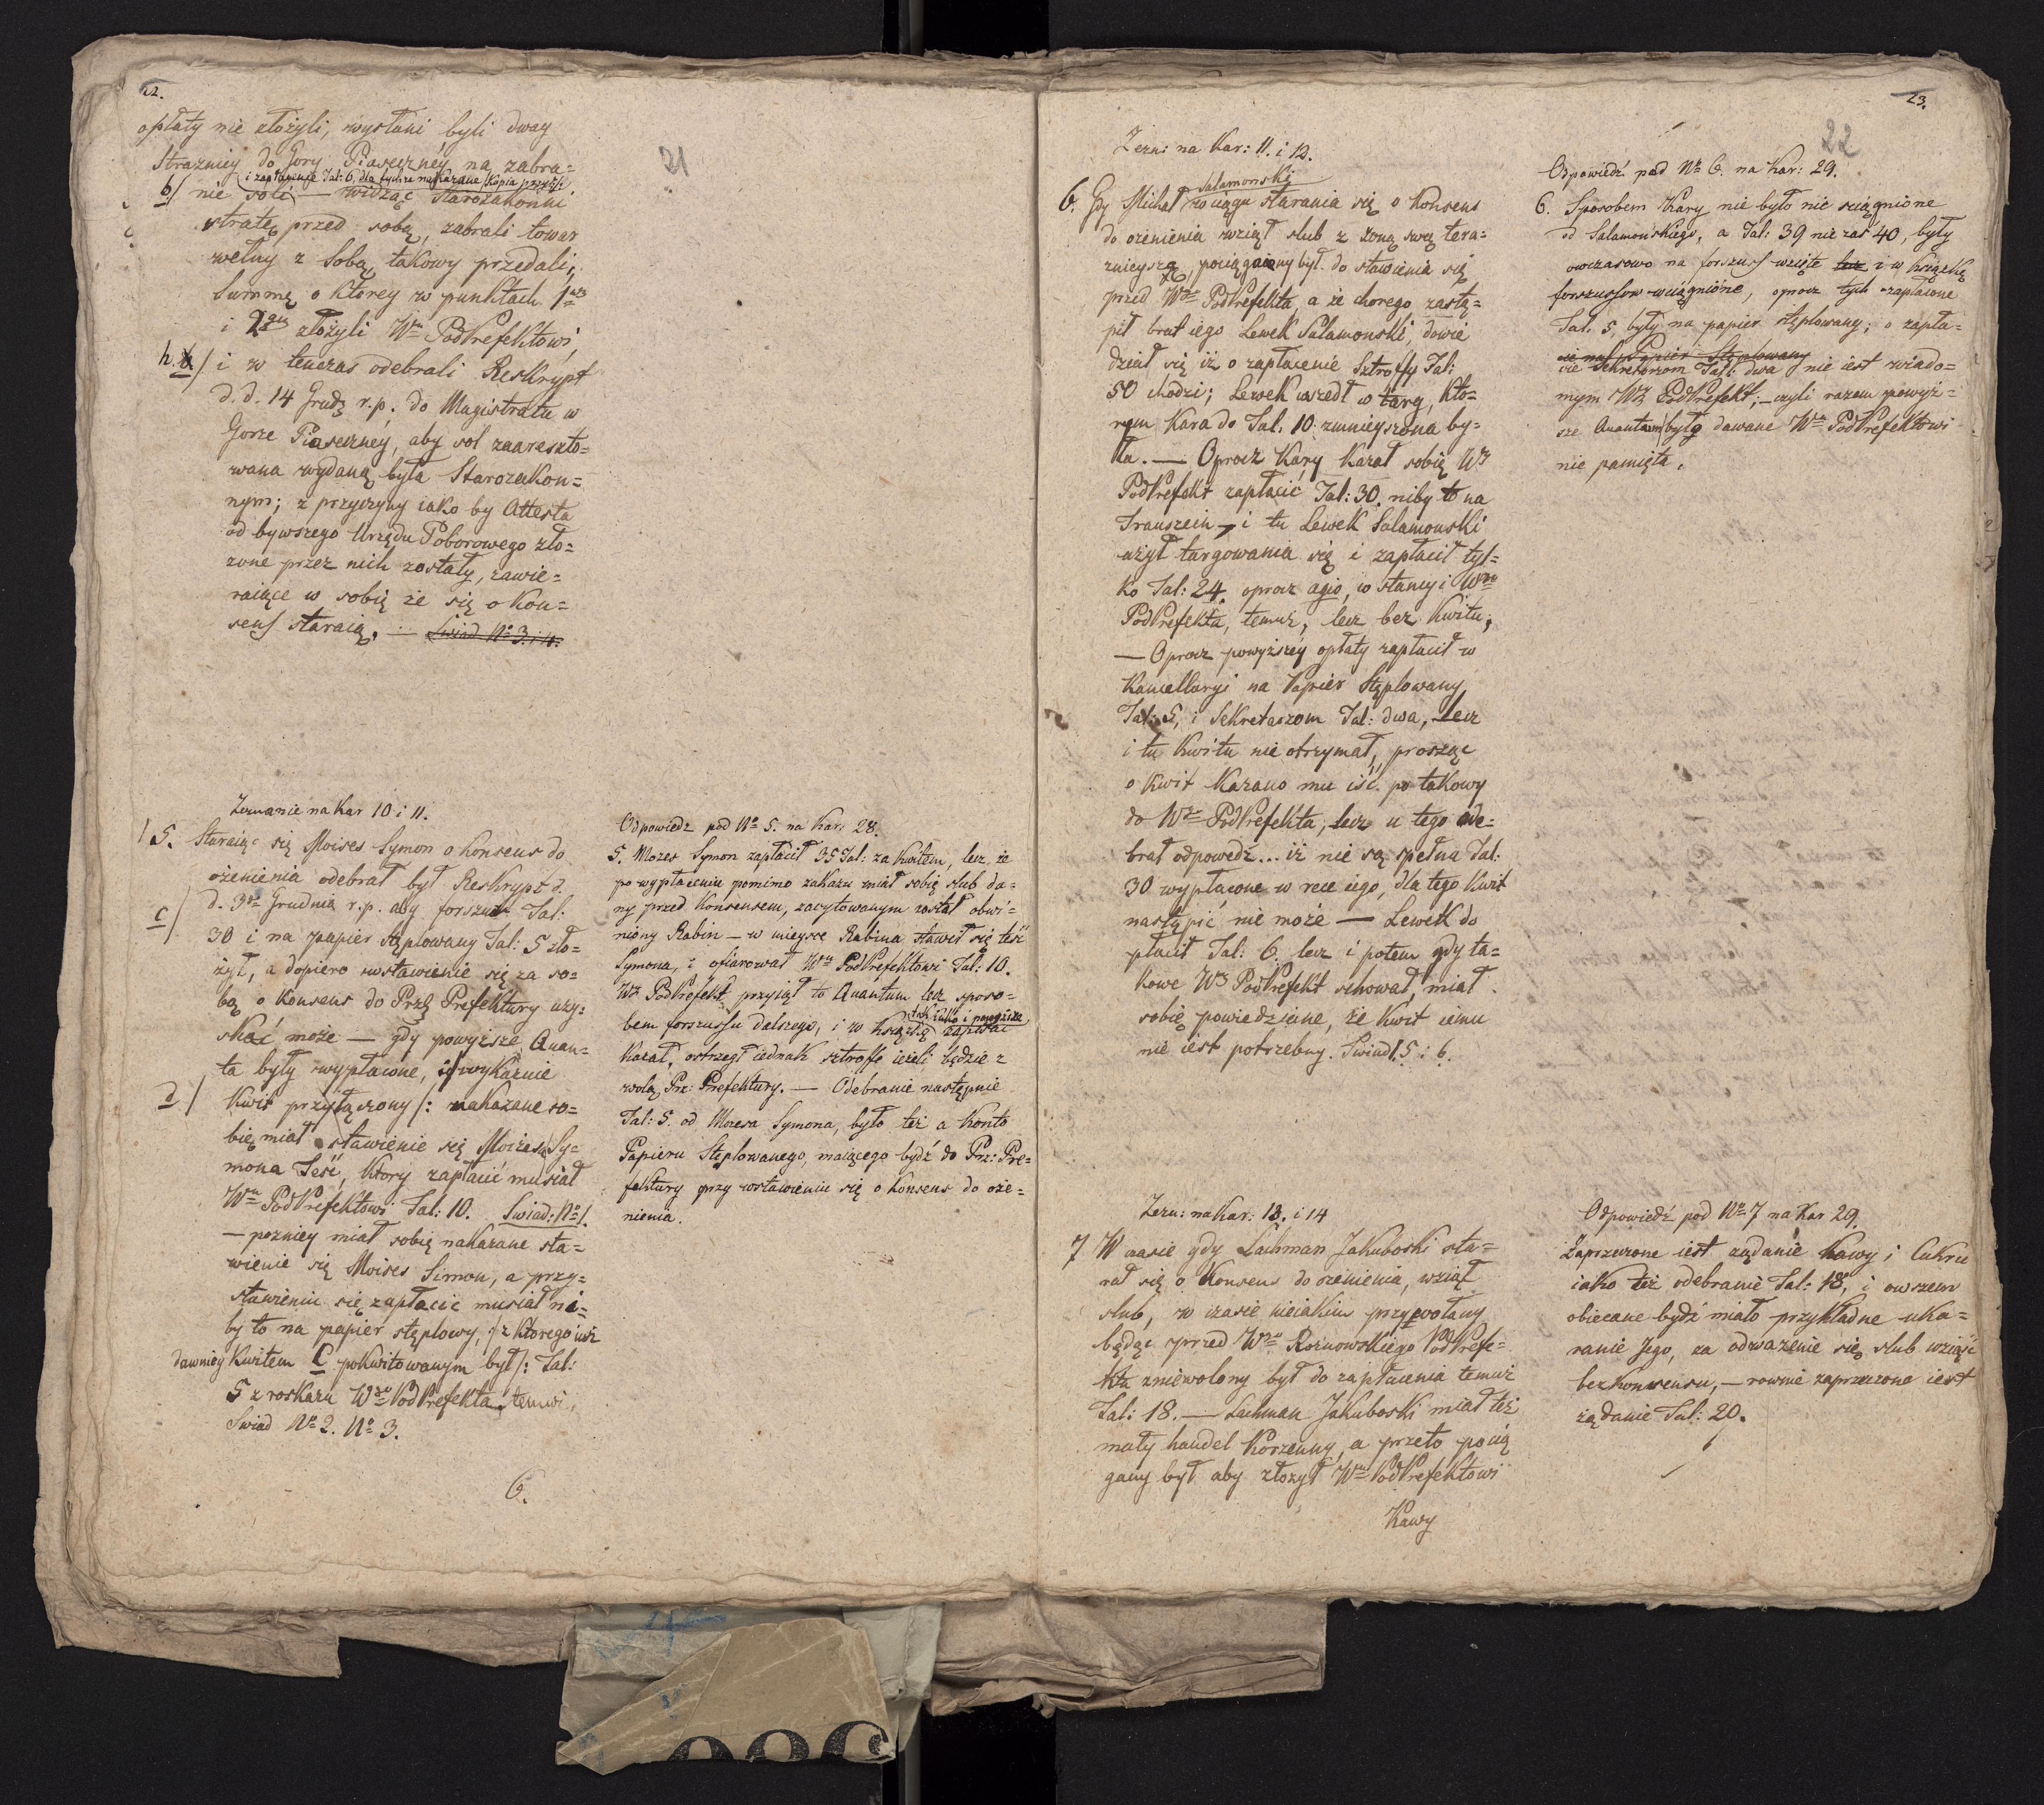 22.
opłaty nie złożyli, wysłani byli dway
Straznicy do Gory Piaseczney na zabra=
i zapłacenie Tal: 6, dla tychże nakazane /Kopia
b/ nie soli — widząc Starozakonni
stratę przed sobą, zabrali towar
wełny z sobą takowy przedali,
Summę o ktorey w punktach 1
i 2 złożyli Wu PodPrefektowi,
h. / i w tenczas odebrali Reskrypt
d. d. 14 Grudz r. p. do Magistratu w
Gorze Piaseczney, aby sol zaareszto=
wana wydaną była Starozakon=
nym; z przyczyny iako by Attesta
od bywszego Urzędu Poborowego zło=
zone przez nich zostały, zawie=
raiące w sobię że się o Kon=
sens staraią. — Swiad No 3. i 4.
21
Zeznanie na Kar 10 i 11.
5. Staraiąc się Moises Symon o Konsens do
ożenienia odebrał był Reskrypt d.
c/ d. 3o Grudnia r. p. aby forszus Tal:
30 i na papier stęplowany Tal: 5 zło=
żył, a dopiero wstawienie się za so=
bą o Konsens do Prze Prefektury uzy=
skać może — gdy powyższe Quan=
ta były wypłacone, wykaznie
d/ Kwit przyłączony /: nakazane so=
bię miał stawienie się Moizesa Sy=
mona Teść, Ktory zapłacić musiał
Wu PodPrefektowi Tal: 10. Swiad: No 1.
— pozniey miał sobię nakazane sta=
wienie się Moises Simon, a przy=
stawieniu się zapłacić musiał ni=
by to na papier stęplowy, /: z ktorego iuż
dawniey Kwitem C pokwitowanym był /: Tal:
5 z roskazu Wgo PodPrefekta, temuż,
Swiad No 2. No 3.
6.
Odpowiedz pod No 5. na Kar: 28.
5. Mozes Symon zapłacił 35 Tal: za Kwitem, lecz że
po wypłaceniu pomimo zakazu miał sobię slub da=
ny przed Konsensem, zacytowanym został obwi=
niony Rabin — w mieysce Rabina stawił się teść
Symona, i ofiarował Wu PodPrefektowi Tal: 10.
Wy PodPrefekt przyiął to Quantum lecz sposo=
bem forszussu dalszego, i w Ksiązkę zapisać
Kazał, ostrzegł iednak sztroffę ieżeli będzie z
wolą Prz: Prefektury. — Odebranie następnie
Tal: 5. od Mozesa Symona, było też a Konto
Papieru Stęplowanego, maiącego bydź do Prz: Pre=
fektury przy wstawieniu się o Konsens do oże=
nienia.
23.
22
Zezn: na Kar: 11. i 12.
Salamonski
6. Gdy Michał w ciągu starania się o Konsens
do ożenienia wziął slub z żoną swą tera=
znieyszą, pociągany był do stawienia się
przed Wgo PodPrefekta, a że chorego zastą=
pił brat iego Lewek Salamonski, dowie
dział się iż o zapłacenie Sztroffy Tal:
50 chodzi; Lewek wszedł w targ, Kto=
rym Kara do Tal: 10. zmnieyszona by=
ła. — Oprocz Kary Kazał sobię Wy
PodPrefekt zapłacić Tal: 30. niby to na
Trauszein, i tu Lewek Salamonski
użył targowania się i zapłacił tyl=
ko Tal: 24. oprocz agio, w stancyi Wgo
PodPrefekta, temuż, lecz bez Kwitu,
— Oprocz powyższey opłaty zapłacił w
Kancellaryi na Papier Stęplowany
Tal: 5, i Sekretarzom Tal: dwa, lecz
i tu Kwitu nie otrzymał, prosząc
o Kwit Kazano mu iść po takowy
do Wgo PodPrefekta, lecz u tego ode=
brał odpowedź... iż nie są spełna Tal:
30 wypłacone w ręce iego, dla tego Kwit
nastąpić nie może — Lewek do
płacił Tal: 6. lecz i potem gdy ta=
kowe Wy PodPrefekt schował, miał
sobię powiedziane, że Kwit iemu
nie iest potrzebny. Swiad: 5 i 6.
Zezn: na Kar: 13. i 14
7 W czasie gdy Lachman Jakuboski sta=
rał się o Konsens do ożenienia, wziął
slub, w czasie nieiakim przywołany
będąc przed Wgo Roznowskiego PodPrefe=
kta zniewolony był do zapłacenia temuż
Tal: 18. — Lachman Jakuboski miał też
mały handel Korzenny, a przeto pocią
gany był aby złożył Wu PodPrefektowi
Kawy
Odpowiedź pod No 6. na Kar: 29.
6. Sposobem Kary nie było nic sciągnione
od Salamońskiego, a Tal: 39 nie zaś 40, były
owczasowo na forszuss wzięte lecz i w ksiązkę
forszussow wciągnione, oprocz tych zapłacone
Tal. 5, były na papier stęplowany; o zapła=
cie na Papier Stęplowany
cie Sekretarzom Tal: dwa nie iest wiado=
mym Wy PodPrefekt; — czyli razem powyż=
sze Quantum były dawane Wu PodPrefektowi
nie pamięta.
Odpowiedź pod No 7 na Kar 29.
Zaprzeczone iest żądanie Kawy i Cukru
iako też odebranie Tal: 18, i owszem
obiecane bydź miało przykładne uka=
ranie Jego, za odważenie się slub wziąść
bez Konsensu, — rownie zaprzeczone iest
żądanie Tal: 20.